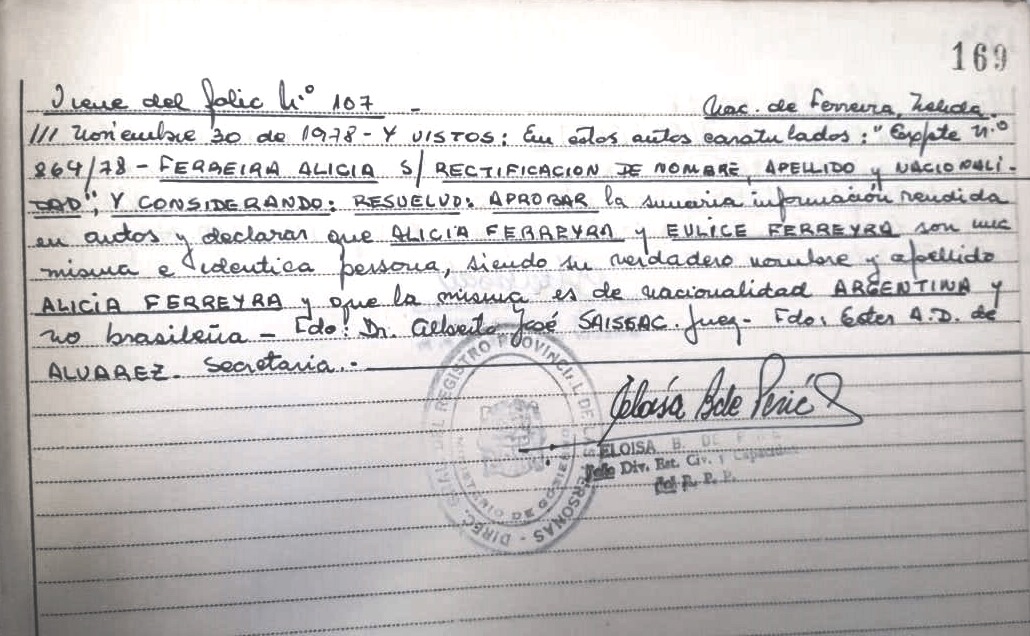 169
Viene del folio N.º 107 -
Nac. de Ferreira, Nelida.
/// Noviembre 30 de 1978 - Y VISTOS: En estos autos caratulados: "Expte N.º
864/78 - FERREIRA ALICIA S/ RECTIFICACION DE NOMBRE, APELLIDO y NACIONALI-
DAD", Y CONSIDERANDO: RESUELVO: APROBAR la sumaria información rendida
en autos y declarar que ALICIA FERREYRA y EULICE FERREYRA son una
misma e identica persona, siendo su verdadero nombre y apellido
ALICIA FERREYRA y que la misma es de nacionalidad ARGENTINA y
no brasileña - Fdo: Dr. Gilberto José SAISSAC. Juez - Fdo: Ester A.D. de
ALVAREZ - Secretaria.-
DIREC. GRAL. DEL REGISTRO PROVINCIAL DE LAS PERSONAS
MINISTERIO DE GOBIERNO
Eloísa B de
ELOISA B. DE
Jefe Div. Ret. Civ. y Capacidad
del R. P. P.